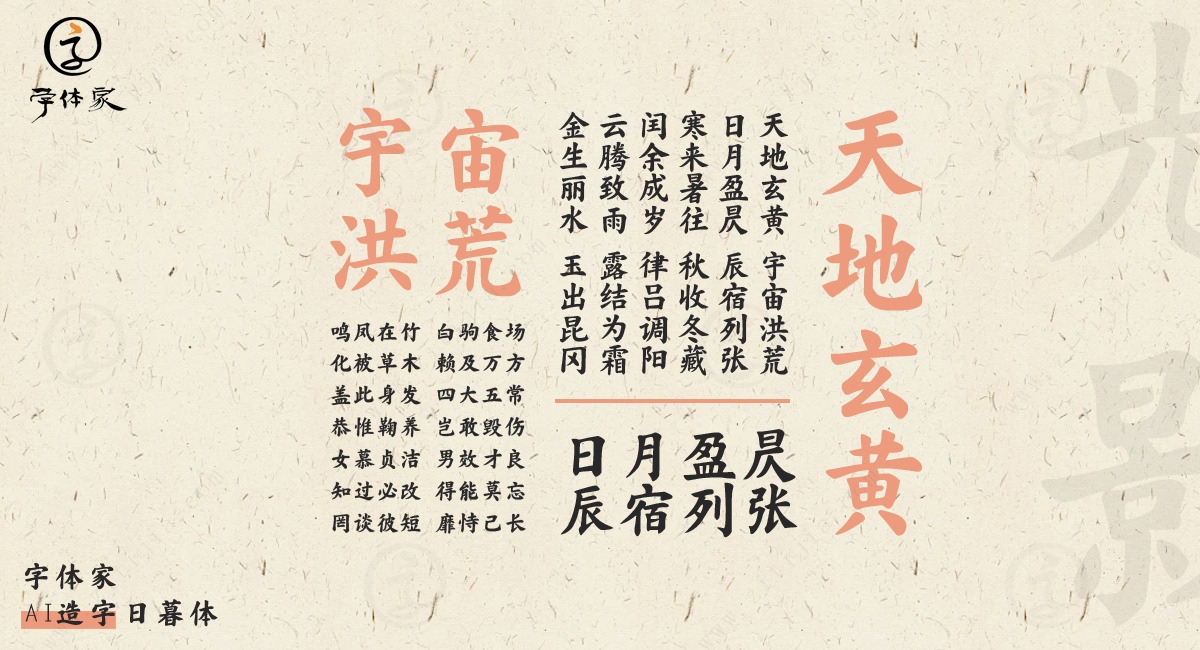 字体家
光景
天地玄黄
天地玄黄 宇宙洪荒
日月盈昃 辰宿列张
寒来暑往 秋收冬藏
闰余成岁 律吕调阳
云腾致雨 露结为霜
金生丽水 玉出昆冈
日月盈昃
辰宿列张
宇宙
洪荒
鸣凤在竹 白驹食场
化被草木 赖及万方
盖此身发 四大五常
恭惟鞠养 岂敢毁伤
女慕贞洁 男效才良
知过必改 得能莫忘
罔谈彼短 靡恃己长
字体家
AI造字日暮体